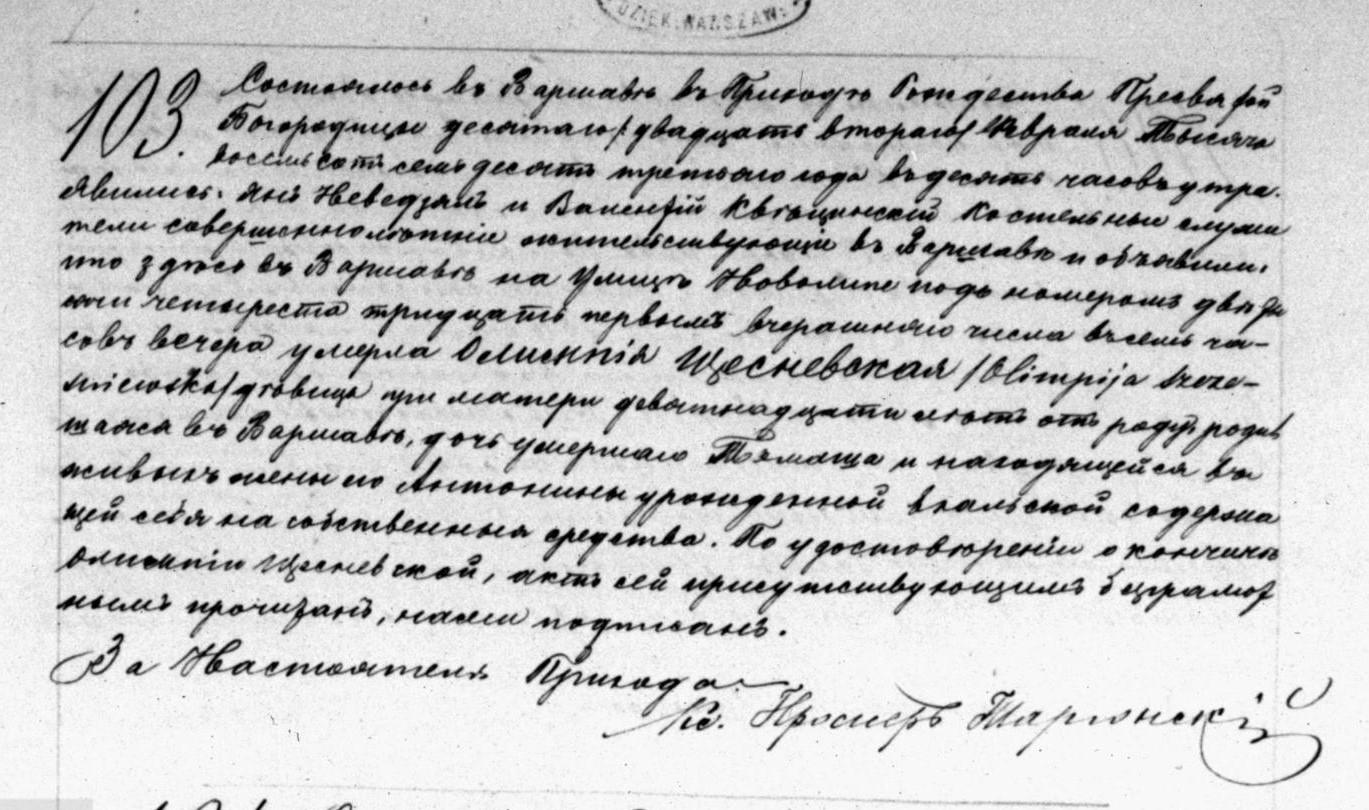 DZIEK. WARSZAW.
103. Состоялось въ Варшавѣ въ Приходѣ Рождества Пресвятой
Богородицы десятаго /: двадцать втораго / Февраля Тысяча
восемьсотъ семьдесятъ третьяго года въ десять часовъ утра.
Явились: Янъ Неведзялъ и Валентій костельные служи
тели совершеннолѣтніе жительствующіе въ Варшавѣ и объявили,
что здѣсь въ Варшавѣ на улицѣ Новолипе подъ номеромъ двѣ ты
сячи четыреста тридцать первымъ вчерашняго числа въ семь ча-
совъ вечера умерла Олимпія Щесневская /Olimpija Szcze-
śniewska/ дѣвица при матери девятнадцати лѣтъ отъ роду, родив
шаяся въ Варшавѣ, дочь умершаго Томаша и находящейся въ
живыхъ жены его Антонины урожденной содержа
щей себя на собственныя средства. По удостовѣреніи о кончинѣ
Олимпіи Щесневской, актъ сей присутствующимъ безграмот
нымъ прочитанъ, нами подписанъ.
За Настоятеля Прихода
Кс. Просперъ Таргонскій